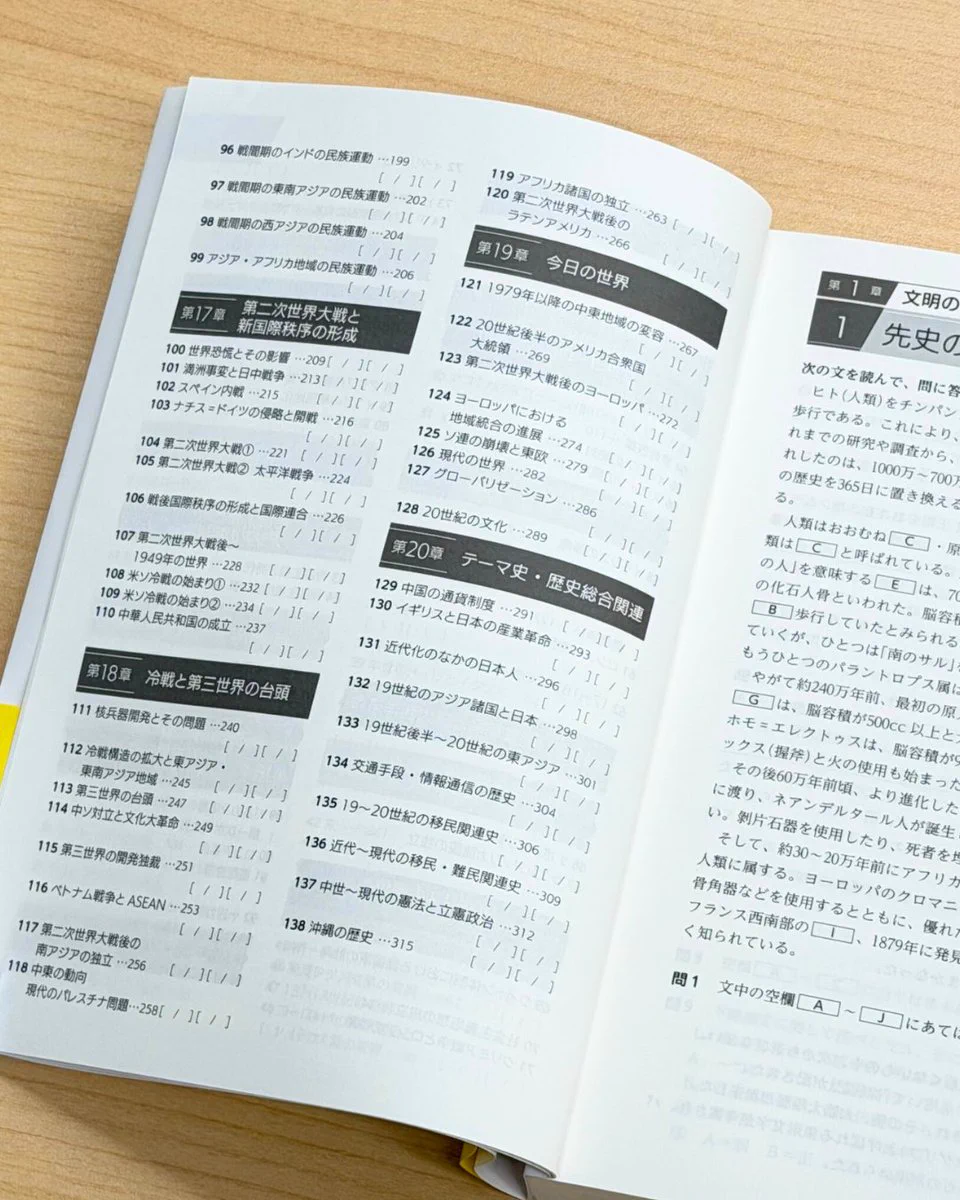 96 戦間期のインドの民族運動 …199
[ / ][ / ]
97 戦間期の東南アジアの民族運動 …202
[ / ][ / ]
98 戦間期の西アジアの民族運動 …204
[ / ][ / ]
99 アジア・アフリカ地域の民族運動 …206
[ / ][ / ]
第17章 第二次世界大戦と
新国際秩序の形成
100 世界恐慌とその影響 …209[ / ][ / ]
101 満洲事変と日中戦争 …213[ / ][ / ]
102 スペイン内戦 …215 [ / ][ / ]
103 ナチス=ドイツの侵略と開戦 …216
[ / ][ / ]
104 第二次世界大戦① …221 [ / ][ / ]
105 第二次世界大戦② 太平洋戦争 …224
[ / ][ / ]
106 戦後国際秩序の形成と国際連合 …226
[ / ][ / ]
107 第二次世界大戦後～
1949年の世界 …228 [ / ][ / ]
108 米ソ冷戦の始まり① …232 [ / ][ / ]
109 米ソ冷戦の始まり② …234 [ / ][ / ]
110 中華人民共和国の成立 …237
[ / ][ / ]
第18章 冷戦と第三世界の台頭
111 核兵器開発とその問題 …240
[ / ][ / ]
112 冷戦構造の拡大と東アジア・
東南アジア地域 …245 [ / ][ / ]
113 第三世界の台頭 …247 [ / ][ / ]
114 中ソ対立と文化大革命 …249
[ / ][ / ]
115 第三世界の開発独裁 …251
[ / ][ / ]
116 ベトナム戦争と ASEAN …253
[ / ][ / ]
117 第二次世界大戦後の
南アジアの独立 …256 [ / ][ / ]
118 中東の動向
現代のパレスチナ問題…258[ / ][ / ]
119 アフリカ諸国の独立 …263 [ / ][ / ]
120 第二次世界大戦後の
ラテンアメリカ …266 [ / ][ / ]
第19章 今日の世界
121 1979年以降の中東地域の変容 …267
[ / ][ / ]
122 20世紀後半のアメリカ合衆国
大統領 …269 [ / ][ / ]
123 第二次世界大戦後のヨーロッパ …272
[ / ][ / ]
124 ヨーロッパにおける
地域統合の進展 …274 [ / ][ / ]
125 ソ連の崩壊と東欧 …279 [ / ][ / ]
126 現代の世界 …282 [ / ][ / ]
127 グローバリゼーション …286
[ / ][ / ]
128 20世紀の文化 …289 [ / ][ / ]
第20章 テーマ史・歴史総合関連
129 中国の通貨制度 …291 [ / ][ / ]
130 イギリスと日本の産業革命 …293
[ / ][ / ]
131 近代化のなかの日本人 …296
[ / ][ / ]
132 19世紀のアジア諸国と日本 …298
[ / ][ / ]
133 19世紀後半～20世紀の東アジア …301
[ / ][ / ]
134 交通手段・情報通信の歴史 …304
[ / ][ / ]
135 19～20世紀の移民関連史 …306
[ / ][ / ]
136 近代～現代の移民・難民関連史 …309
[ / ][ / ]
137 中世～現代の憲法と立憲政治 …312
[ / ][ / ]
138 沖縄の歴史 …315 [ / ][ / ]
第1章 文明の
1 先史の
次の文を読んで、問に答
ヒト(人類)をチンパン
歩行である。これにより、
れまでの研究や調査から、
れしたのは、1000万～700万
の歴史を365日に置き換える
る。
人類はおおむね C ・原
類は C と呼ばれている。
の人」を意味する E は、70
の化石人骨といわれた。脳容積
B 歩行していたとみられる
ていくが、ひとつは「南のサル」を
もうひとつのパラントロプス属は
やがて約240万年前、最初の原人
G は、脳容積が500cc 以上と大
ホモ=エレクトゥスは、脳容積が9
ックス(握斧)と火の使用も始まった
その後60万年前頃、より進化した
に渡り、ネアンデルタール人が誕生し
い。剝片石器を使用したり、死者を埋
そして、約30～20万年前にアフリカ
人類に属する。ヨーロッパのクロマニ
骨角器などを使用するとともに、優れた
フランス西南部の I 、1879年に発見
く知られている。
問1 文中の空欄 A ～ J にあては